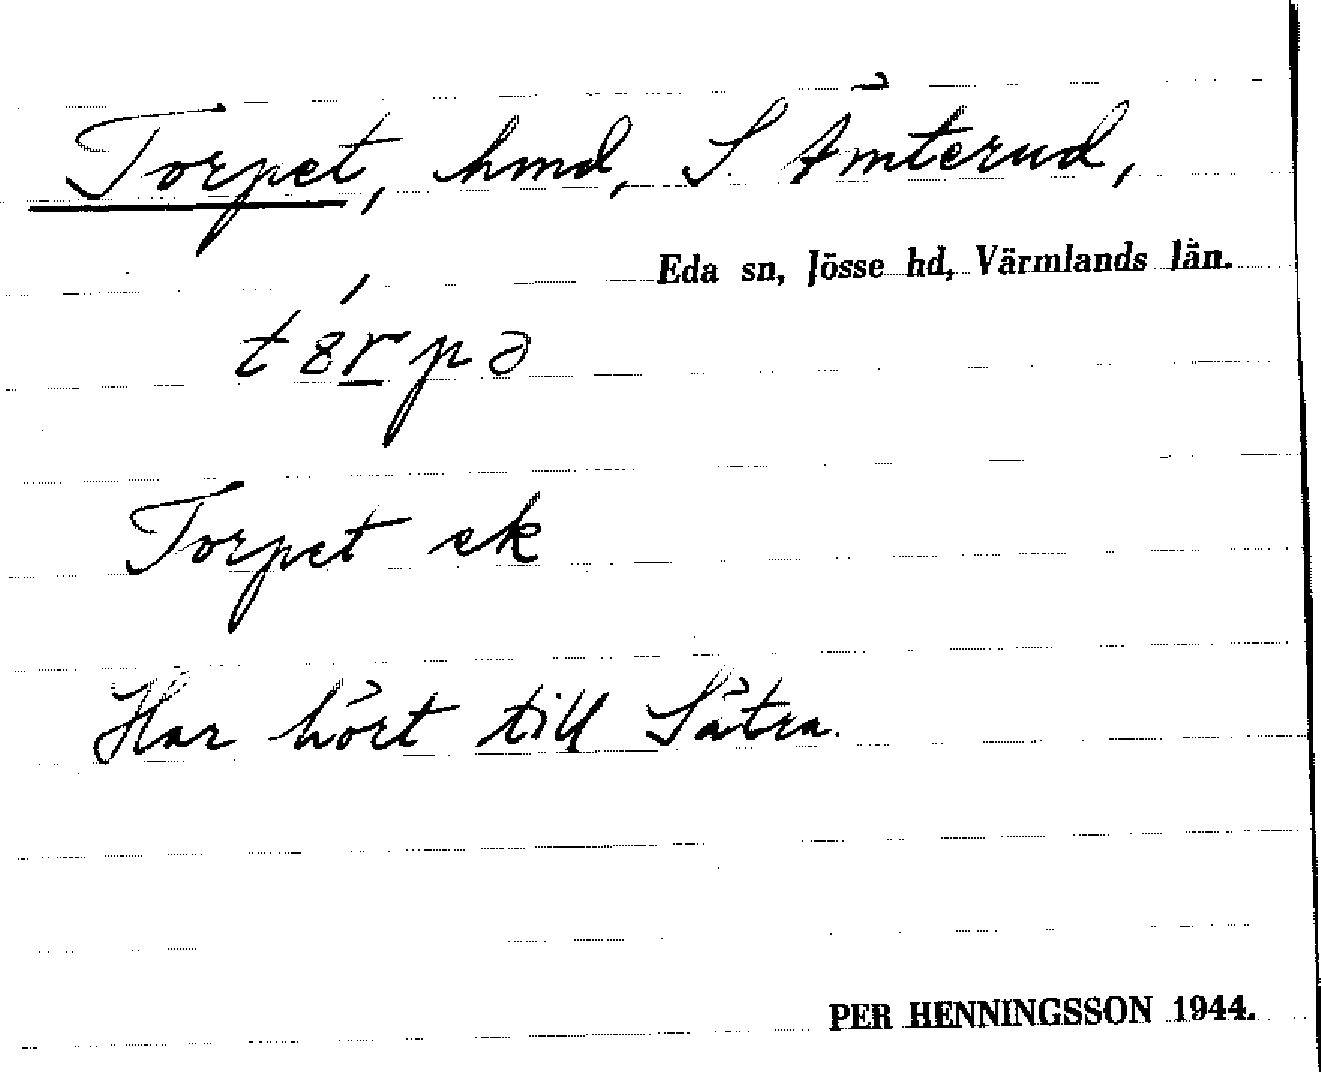 Torpet, hmd, S. Åmterud,
Eda sn, Jösse hd, Värmlands län.
t8r̲pə
Torpet ek
Har hört till Sätra.
PER HENNINGSSON 1944.